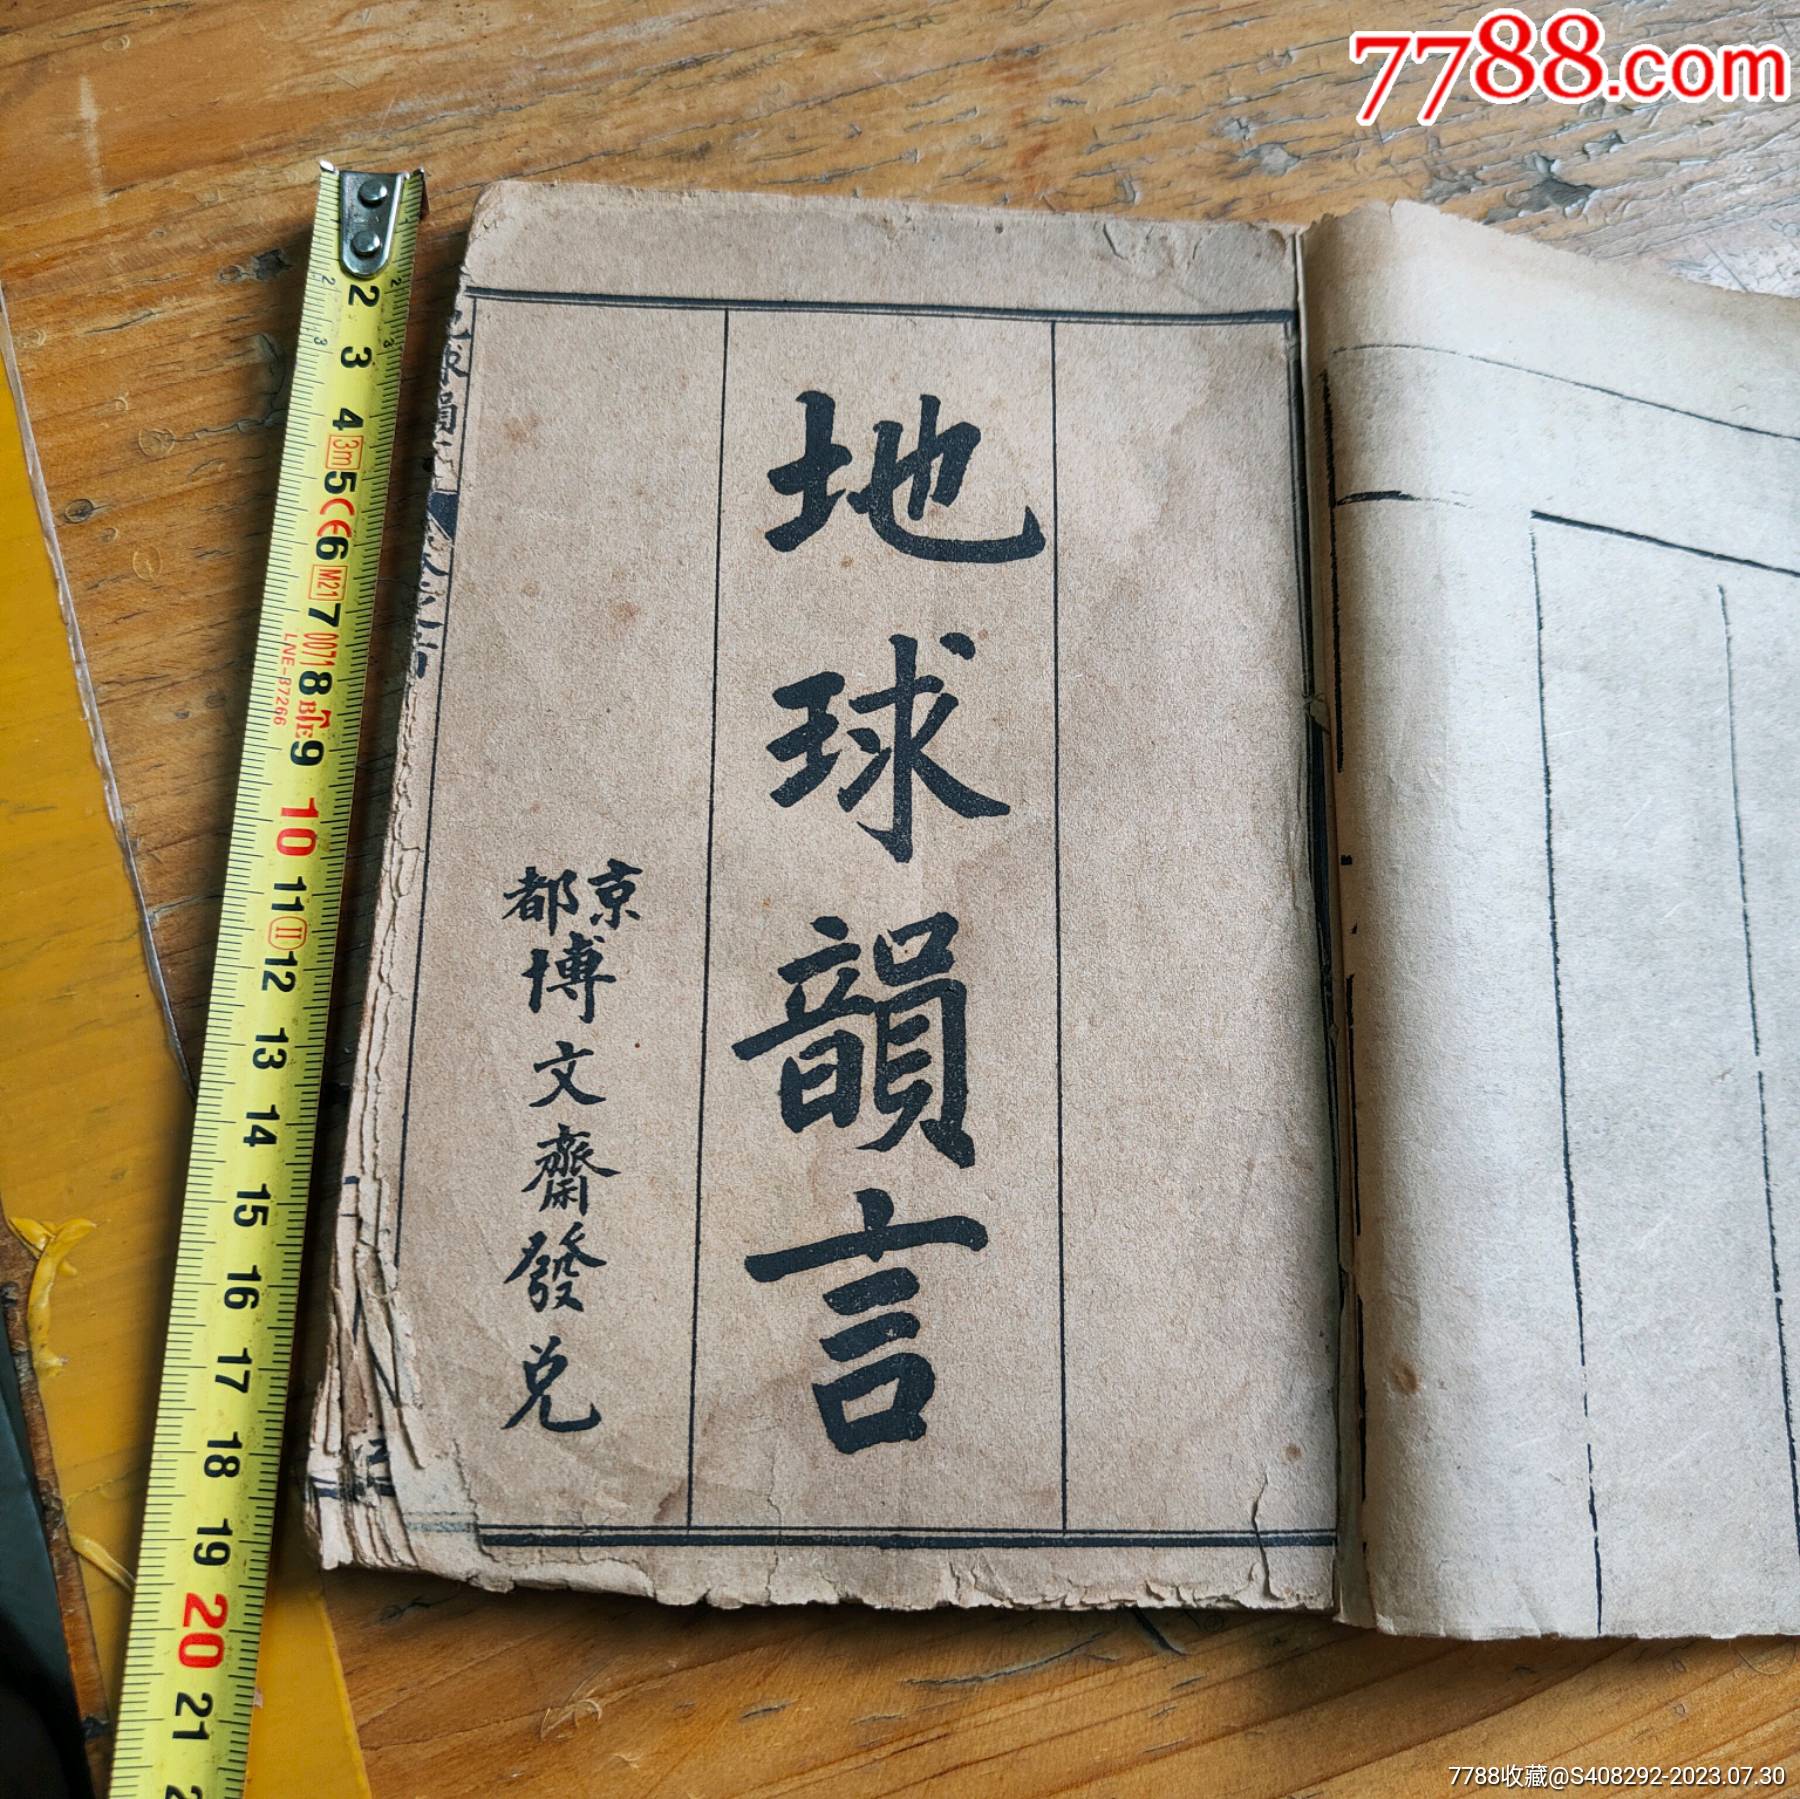 7788.com
地球韻言
京都
博文齋發兌
2
3
4
3m
5
CE
6
M21
7
0071
LNE-87266
8
9
10
11
II
12
13
14
15
16
17
18
19
20
21
7788收藏@S408292-2023.07.30